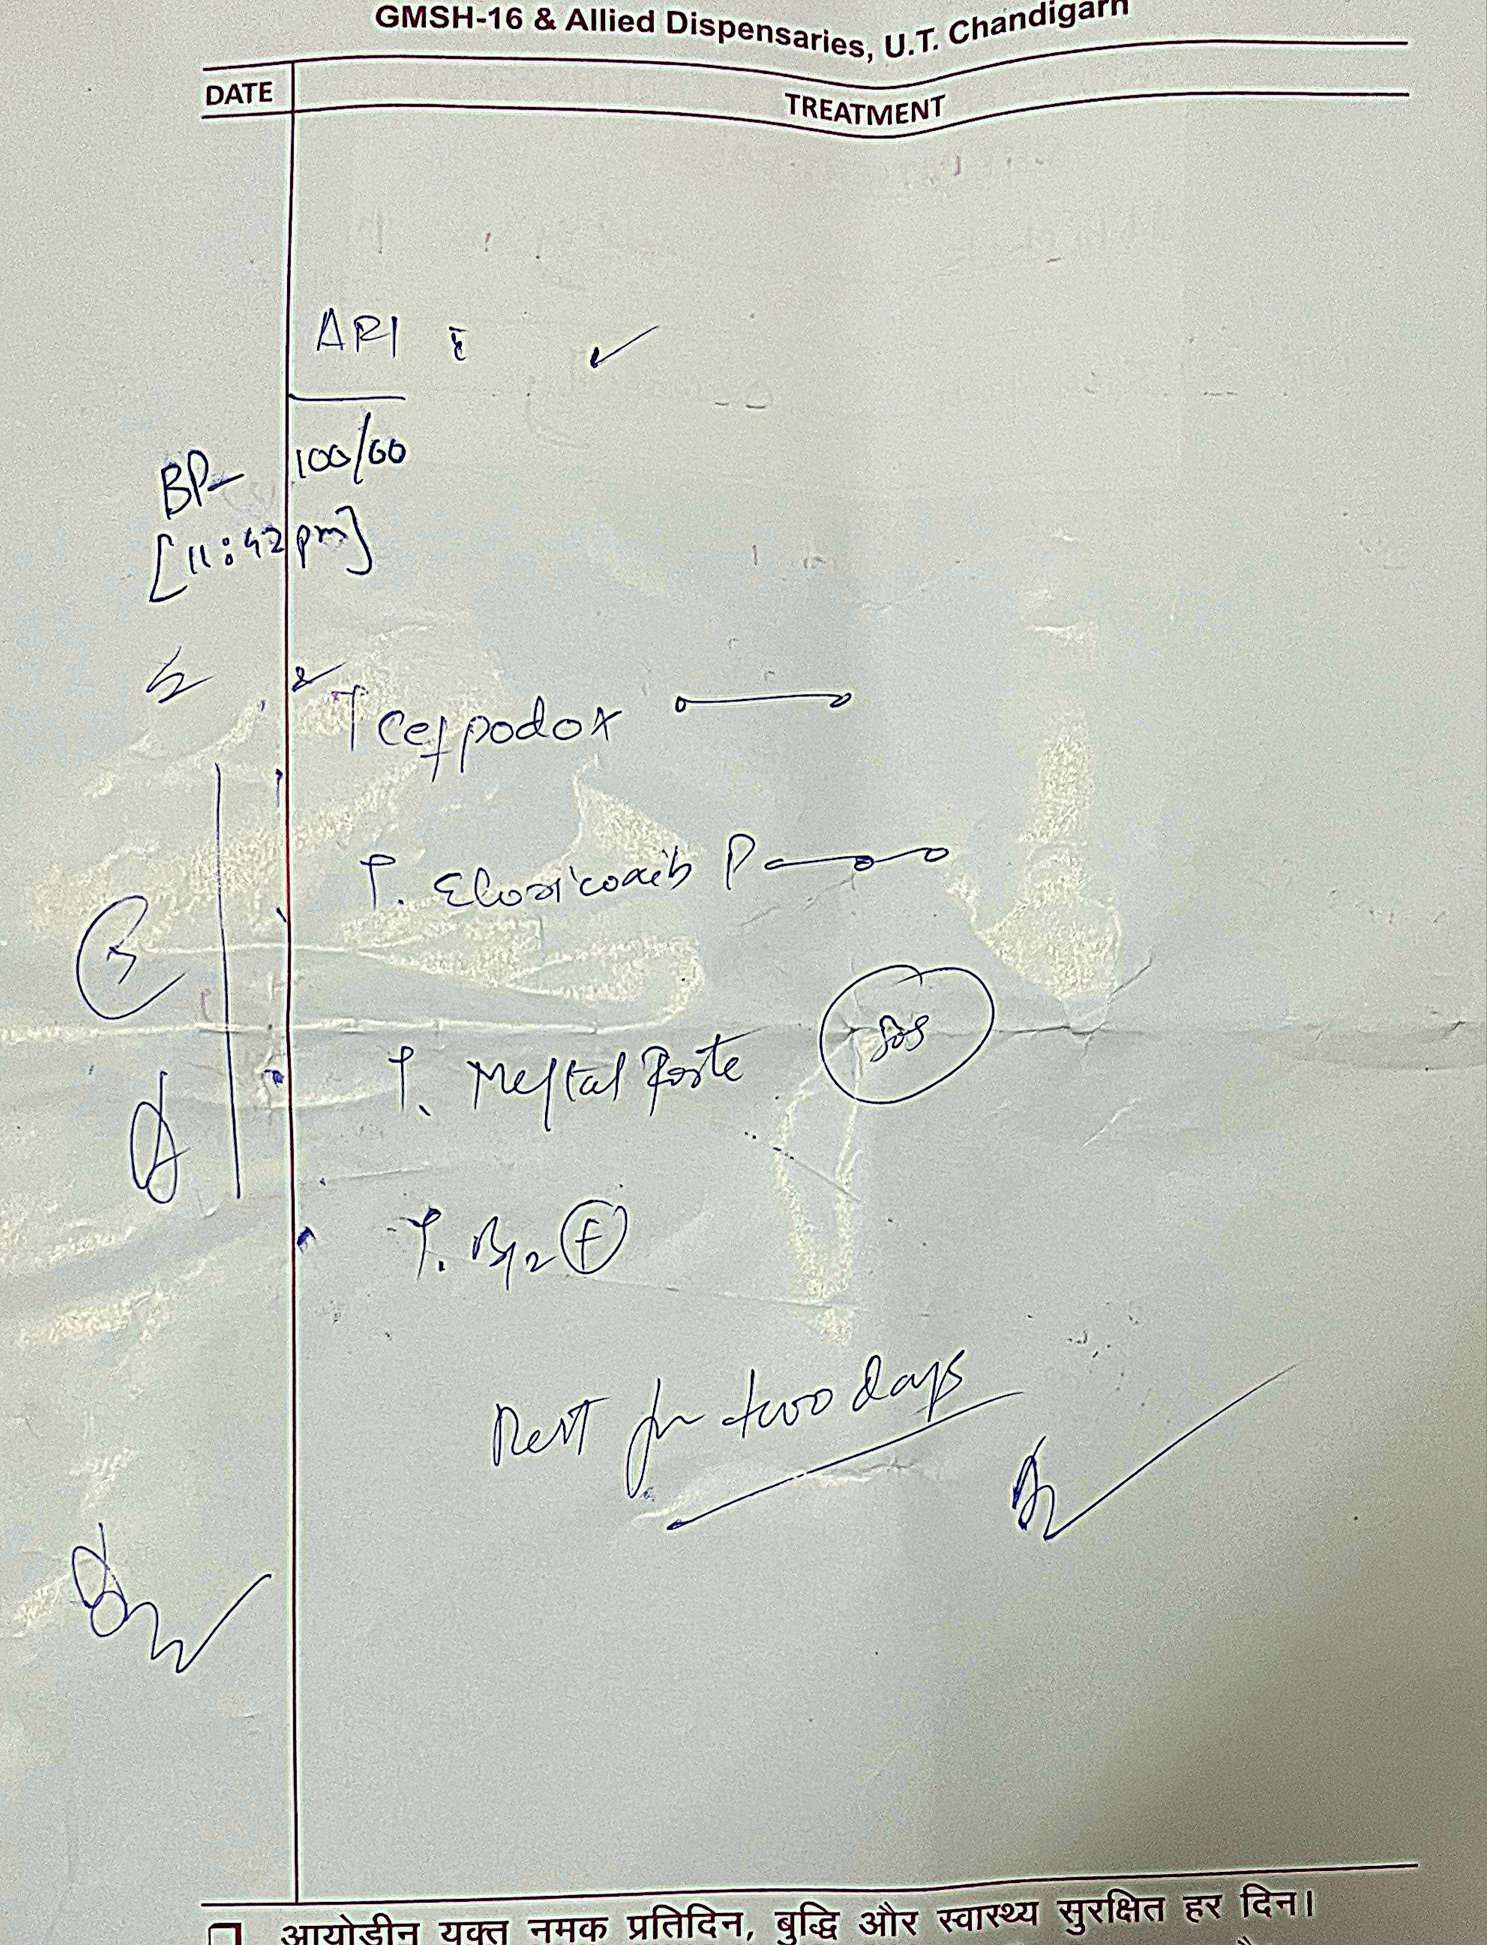 GMSH-16 & Allied Dispensaries, U.T. Chandigarh
DATE
TREATMENT
BP- 100/60
[11:42 pm]
T Cefpodox
T. Etoricoxib P
T. Meftal forte SOS
T. B12 F
Rest for two days
आयोडीन युक्त नमक प्रतिदिन, बुद्धि और स्वास्थ्य सुरक्षित हर दिन।